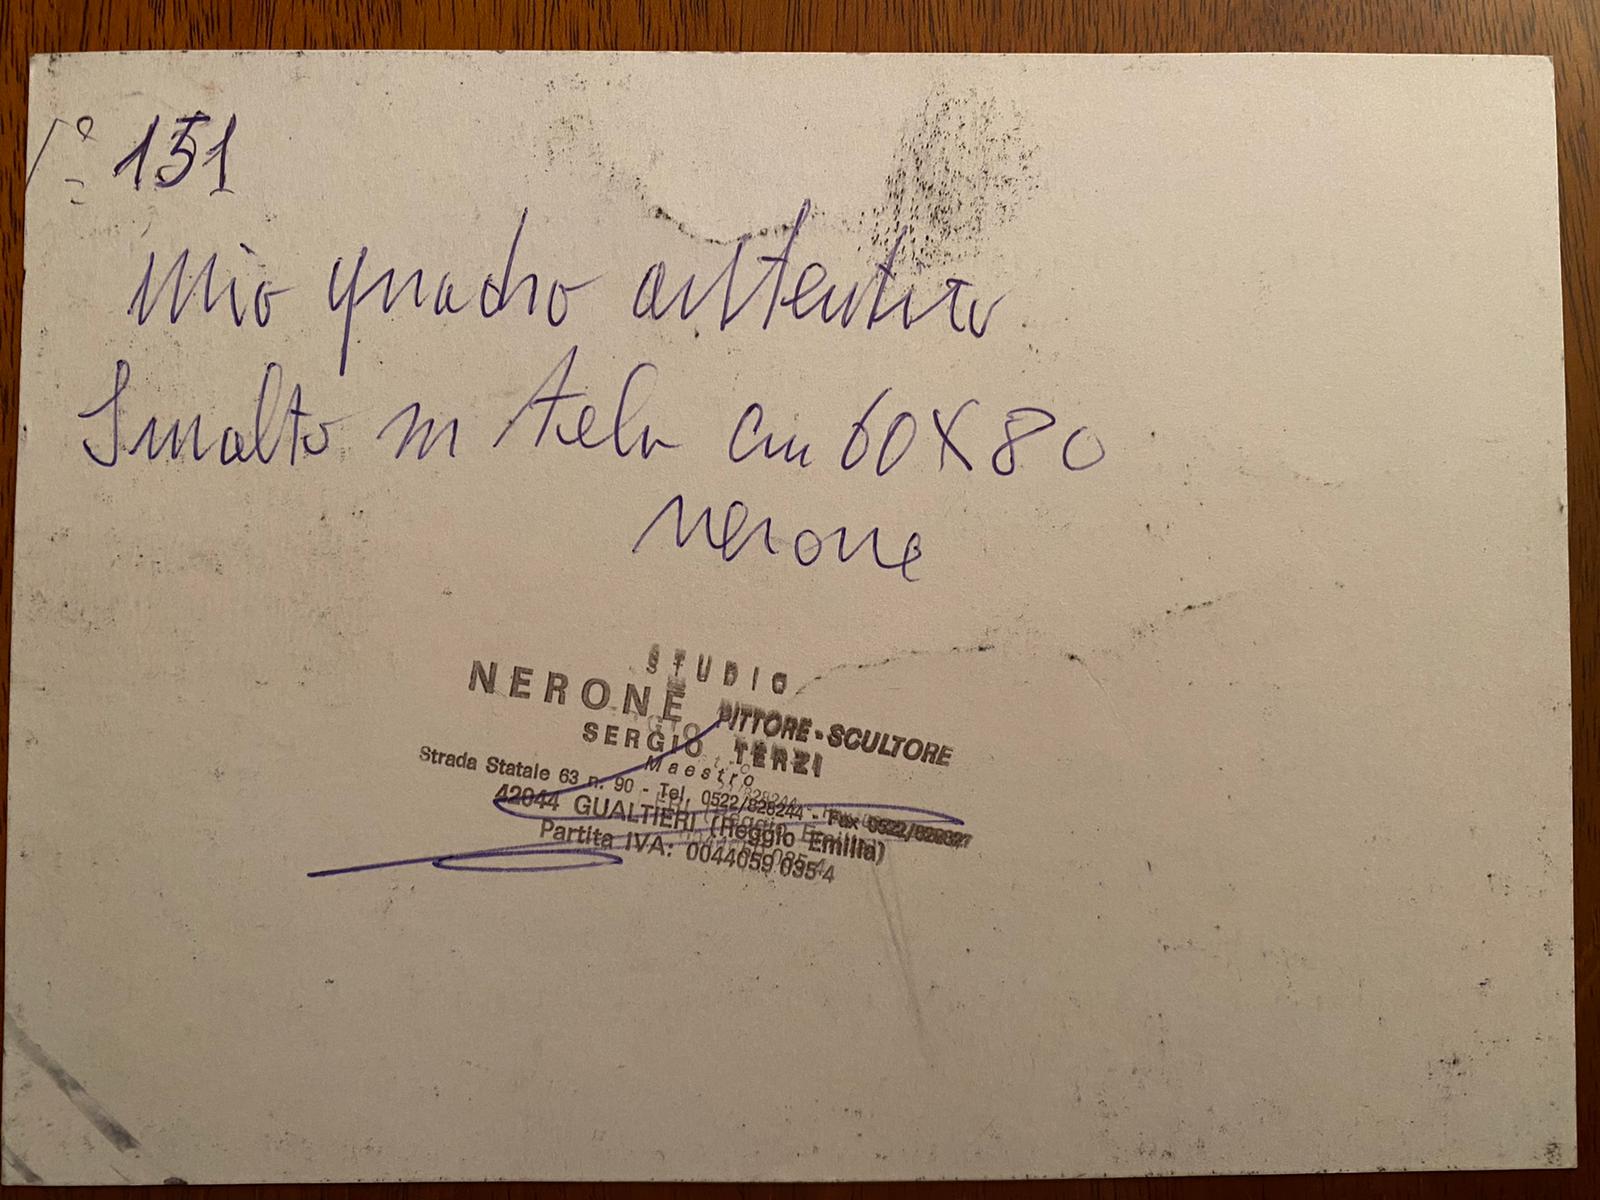 n° 151
mio quadro autentico
Smalto su tela cm 60X80
nerone
STUDIO
NERONE PITTORE - SCULTORE
SERGIO TERZI
Maestro
Strada Statale 63 n. 90 - Tel. 0522/828244 - Fax
42044 GUALTIERI (Reggio Emilia)
Partita IVA: 0044059 035 4